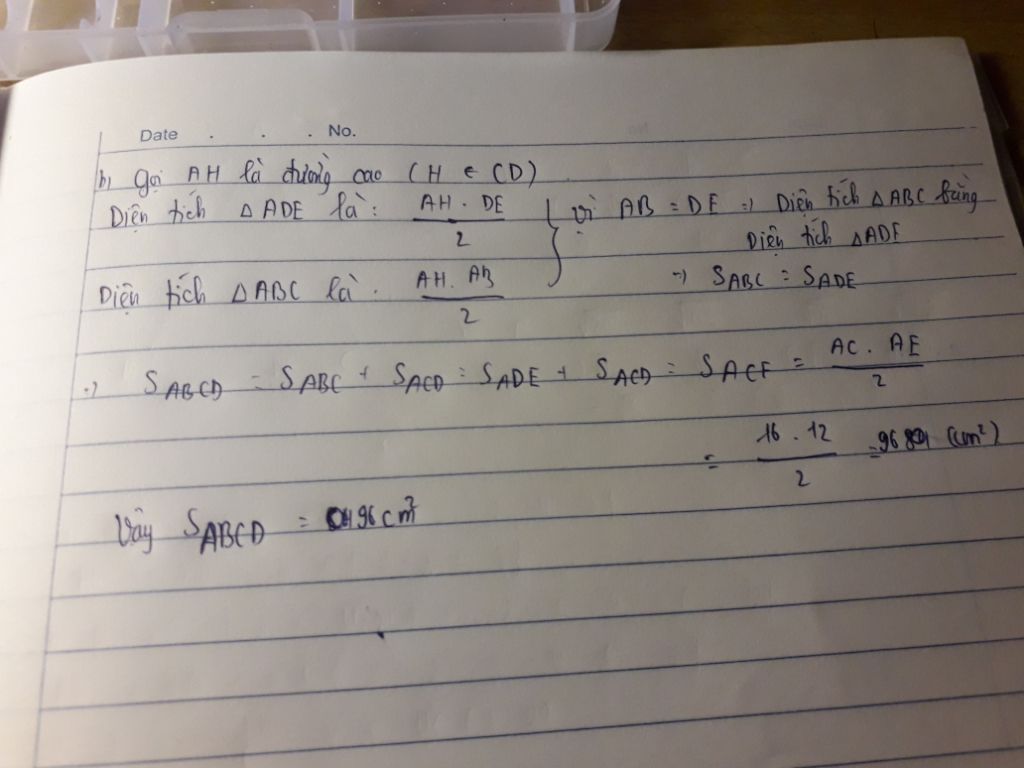 Date . . . No.
b, Gọi AH là đường cao (H ∈ CD)
Diện tích △ ADE là: AH . DE / 2 } vì AB = DE => Diện tích △ABC bằng
Diện tích △ADE
Diện tích △ABC là . AH. AB / 2 => SABC = SADE
=> SABCD = SABC + SACD = SADE + SACD = SACE = AC . AE / 2
= 16 . 12 / 2 = 96 (cm²)
Vậy SABCD = 96 cm²